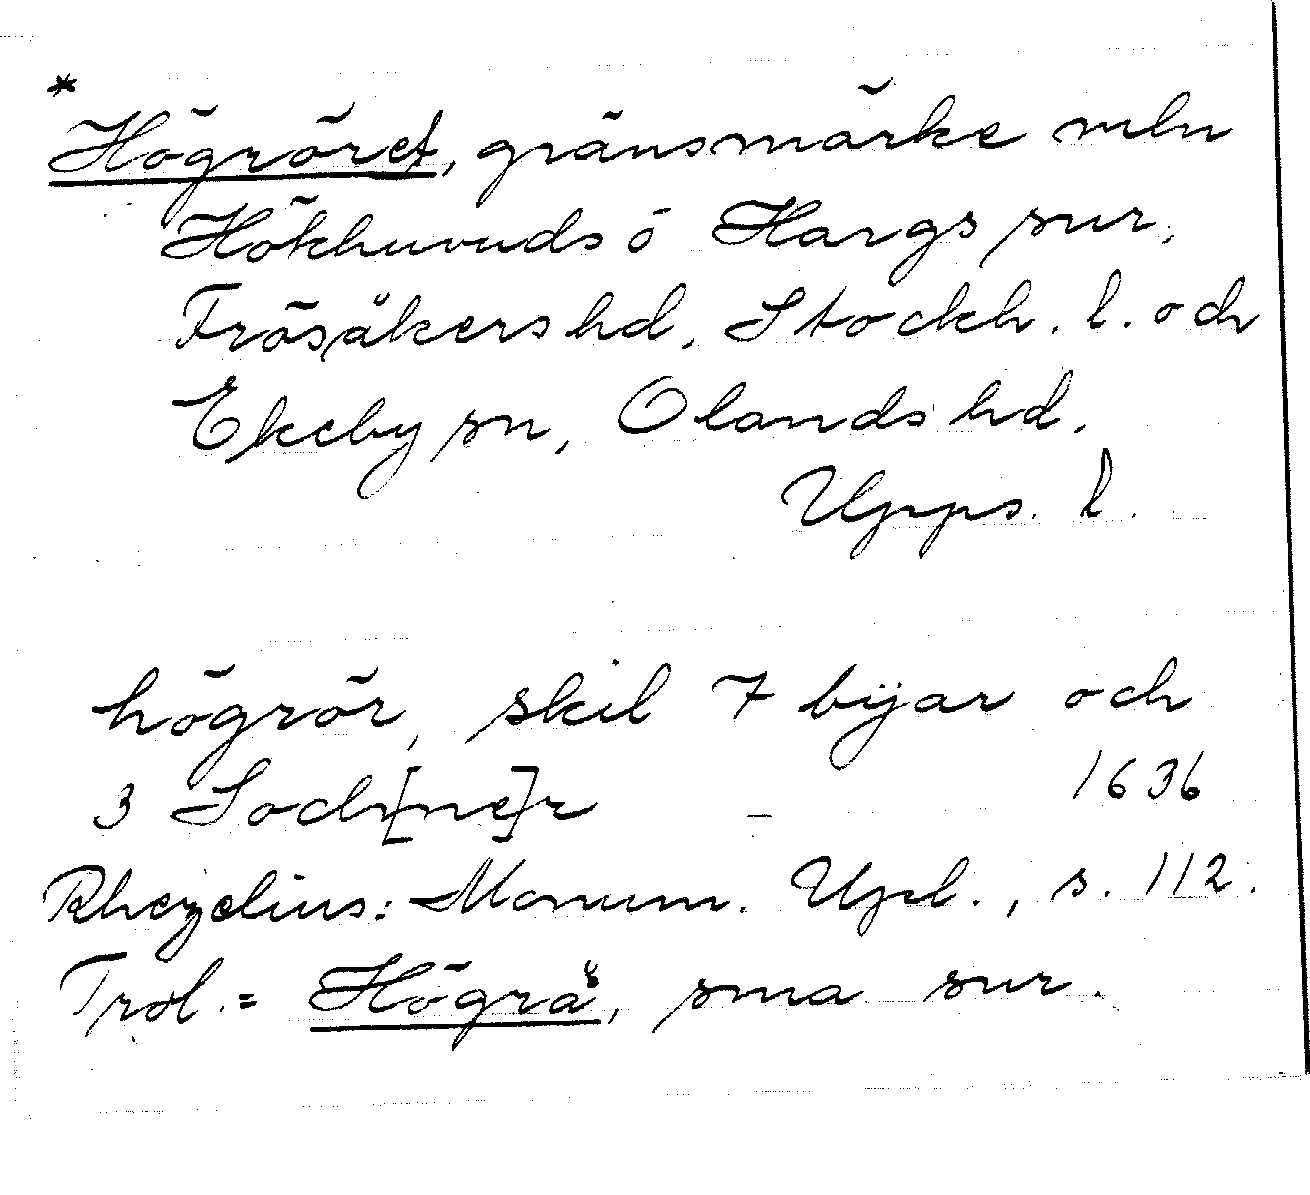 *
Högröret, gränsmärke mln
Hökhuvuds o Hargs snr,
Frösåkers hd, Stockh. l. och
Ekeby sn, Olands hd,
Upps. l.
högrör, skil 7 bÿar och
3 Soch[ne]r – 1636
Rhezelius: Monum. Upl., s. 112.
Trol. = Högrå, sma snr.